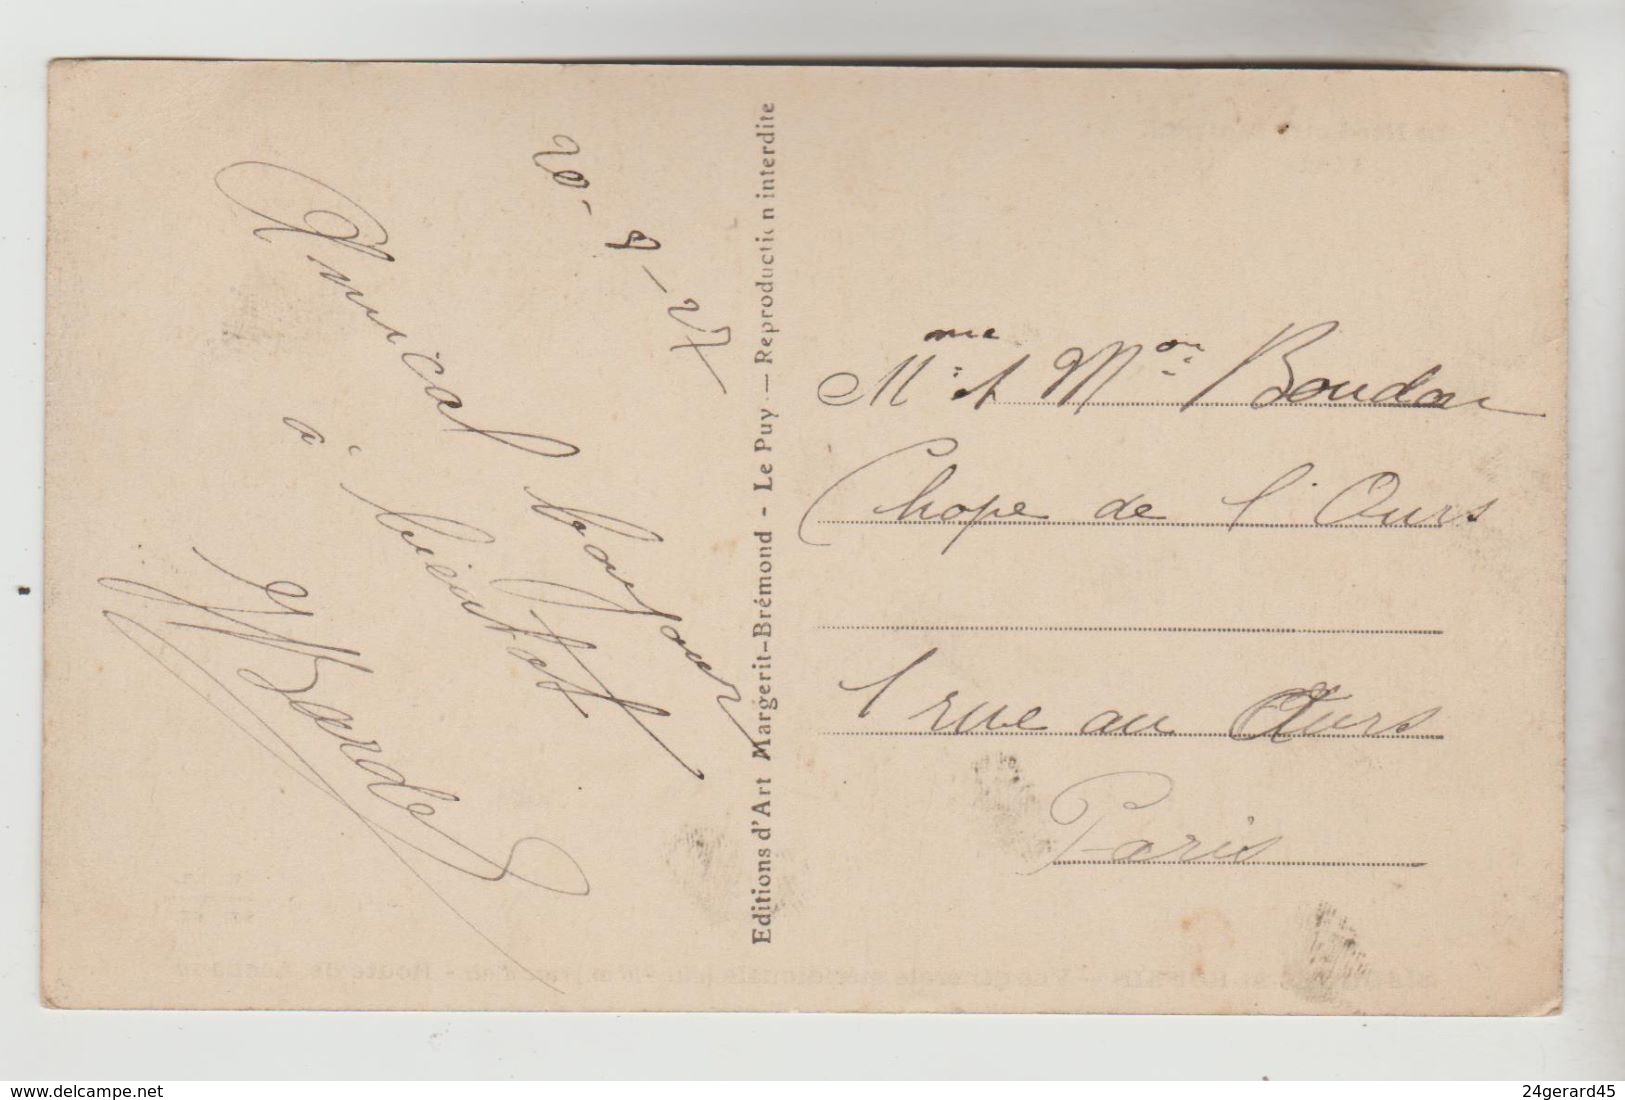 20-8-27
Amical bonjour
à bientot
Bardel
Editions d'Art Margerit-Brémond - Le Puy — Reproduction interdite
Mme et Mon Boudon
Chope de l'Ours
1 rue au Ours
Paris
www.delcampe.net
24gerard45